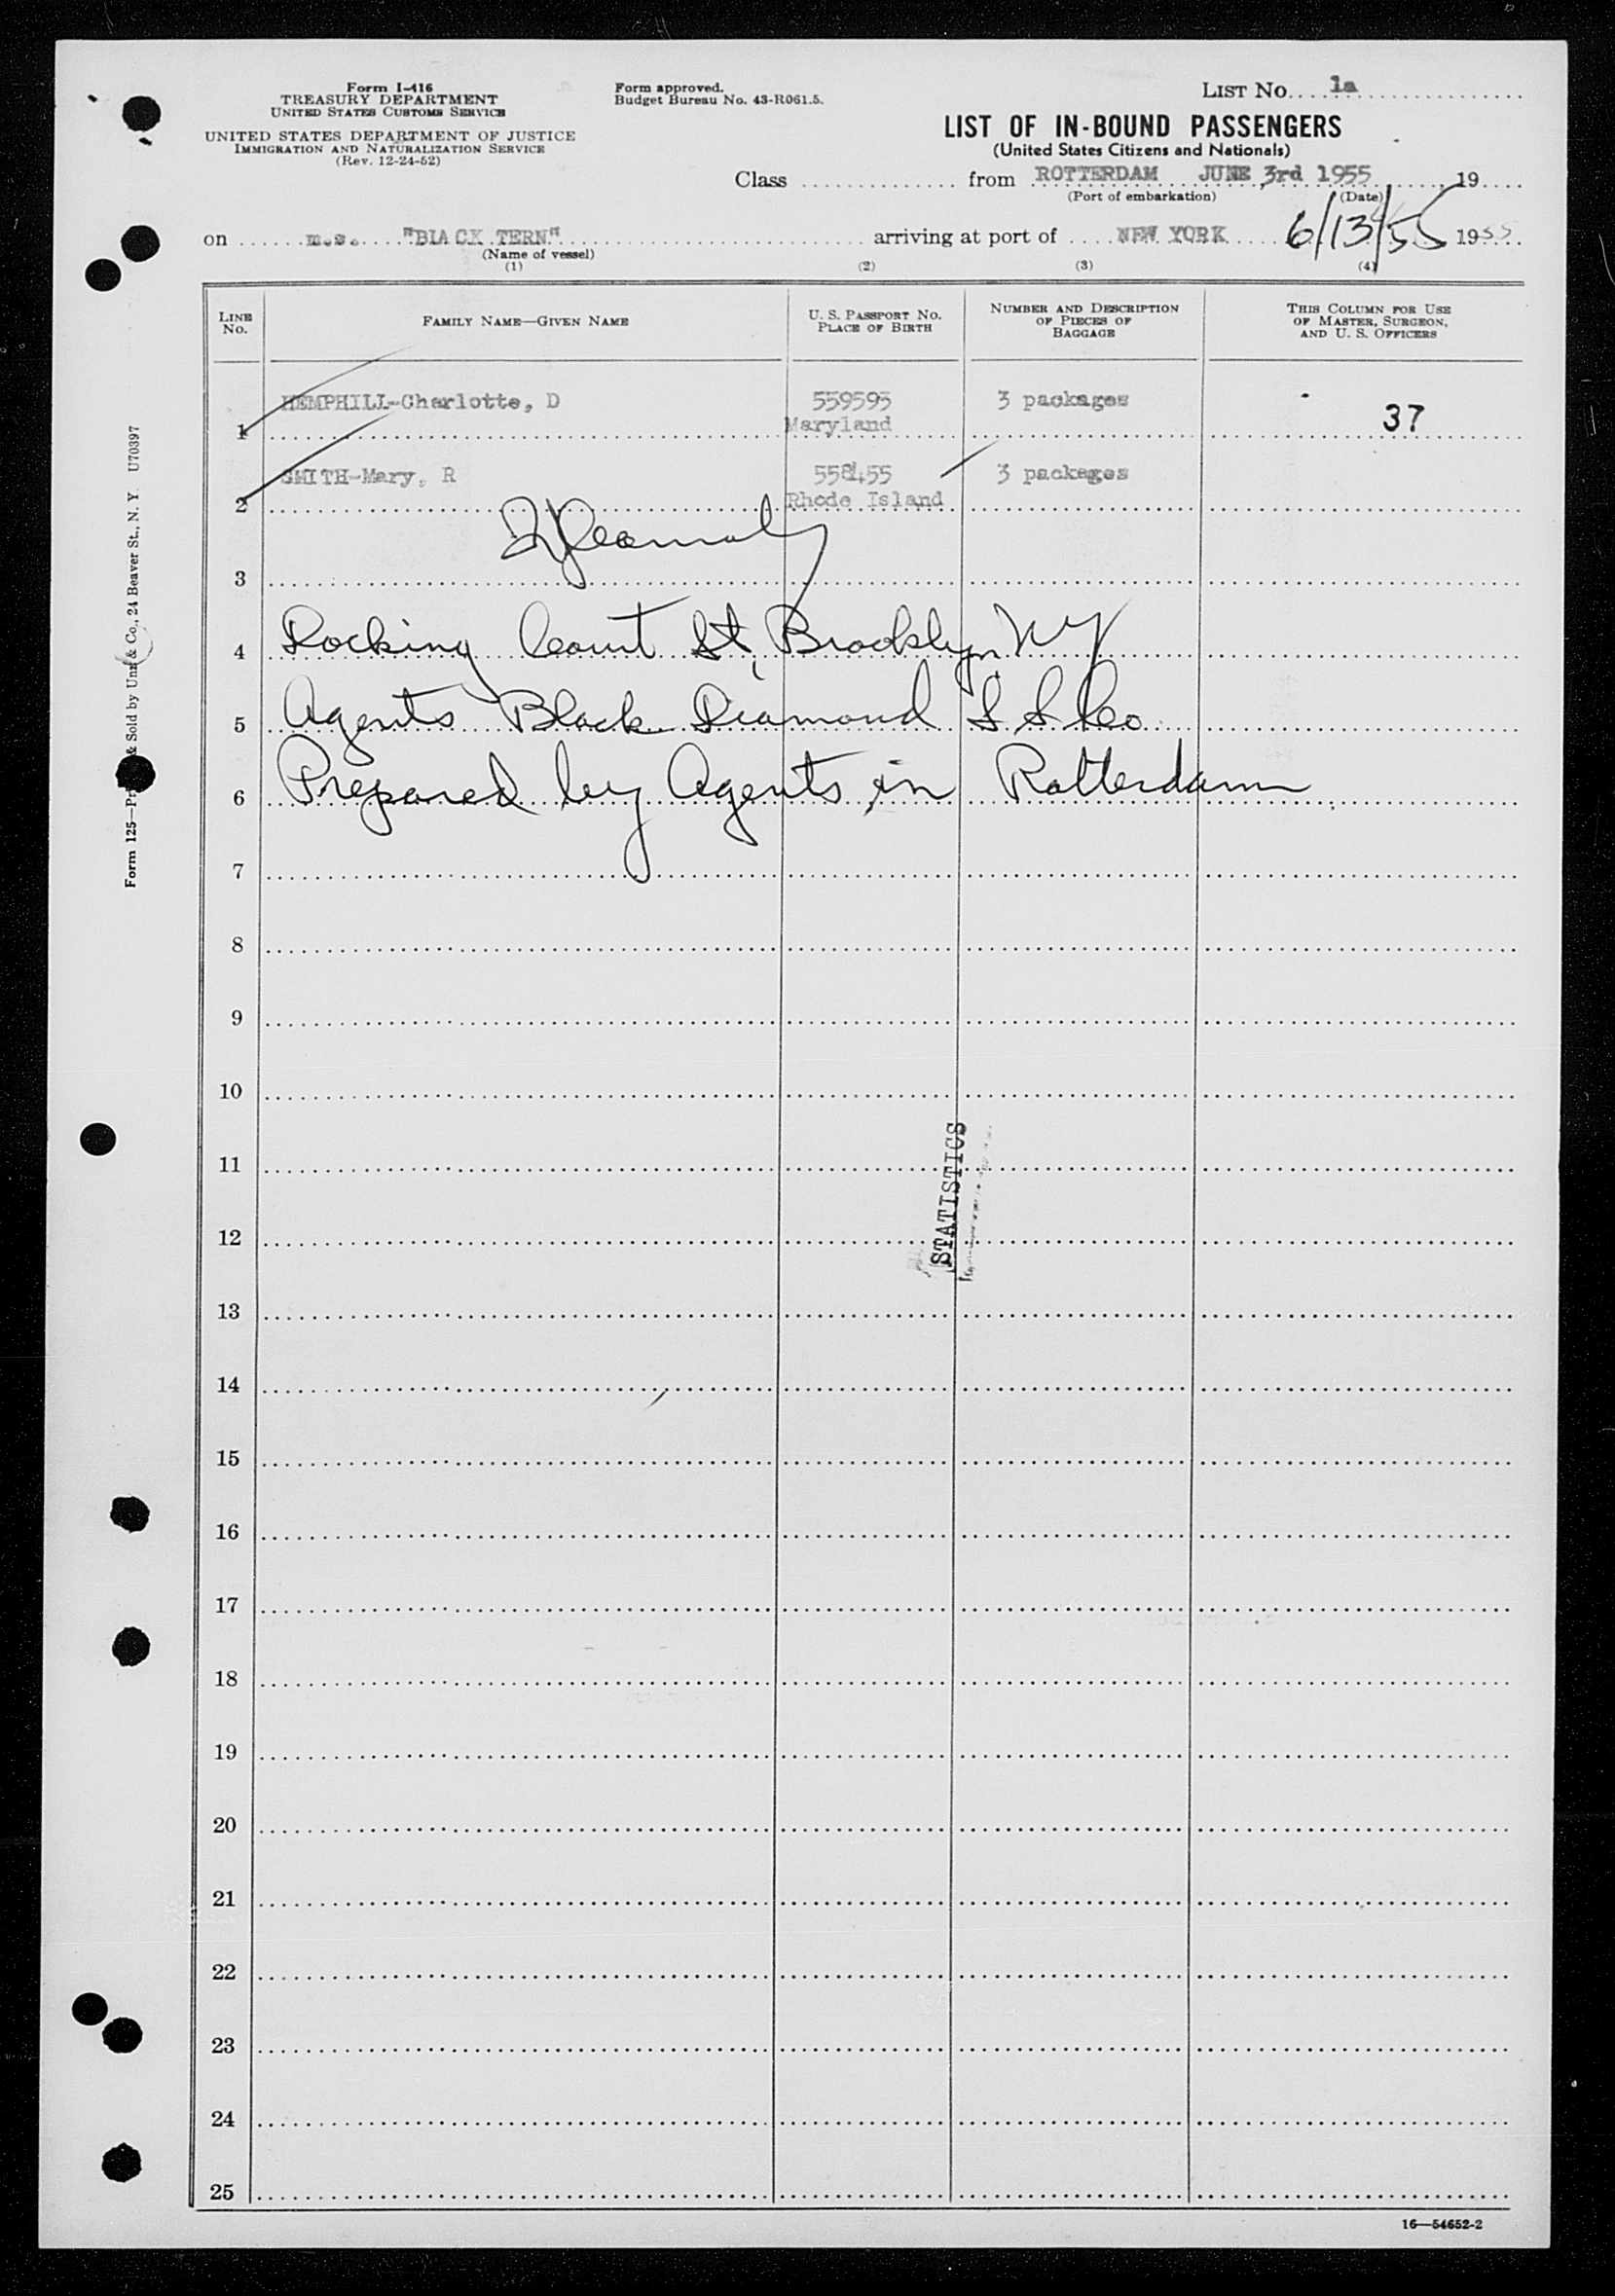 Form I-416
TREASURY DEPARTMENT
UNITED STATES CUSTOMS SERVICE
UNITED STATES DEPARTMENT OF JUSTICE
IMMIGRATION AND NATURALIZATION SERVICE
(Rev. 12-24-52)
Form approved.
Budget Bureau No. 43-R061.5.
LIST No. 1a
LIST OF IN-BOUND PASSENGERS
(United States Citizens and Nationals)
Class from ROTTERDAM JUNE 3rd 1955 19
(Port of embarkation) (Date)
on m.s. "BLACK TERN" arriving at port of NEW YORK 6/13/55 1955
(Name of vessel)
(1) (2) (3) (4)
LINE No.
FAMILY NAME—GIVEN NAME
U. S. PASSPORT No. PLACE OF BIRTH
NUMBER AND DESCRIPTION OF PIECES OF BAGGAGE
THIS COLUMN FOR USE OF MASTER, SURGEON, AND U. S. OFFICERS
HEMPHILL-Charlotte, D 559595 3 packages
1 Maryland 37
SMITH-Mary, R 3 packages
2 Rhode Island
3
4 Docking Court St, Brooklyn NY
5 Agents Black Diamond S S Co
6 Prepared by Agents in Rotterdam
7
8
9
10
11
12
13
14
15
16
17
18
19
20
21
22
23
24
25
STATISTICS
Form 125— & Sold by Unz & Co., 24 Beaver St., N. Y. U70397
16—54652-2